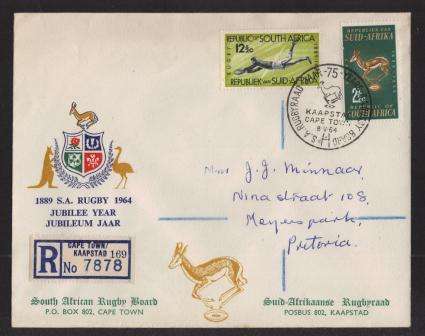 REPUBLIC OF SOUTH AFRICA
12½c
REPUBLIEK VAN SUID-AFRIKA
REPUBLIEK VAN
SUID-AFRIKA
2½c
REPUBLIC OF
SOUTH AFRICA
75
S.A. RUGBYRAAD
KAAPSTAD
CAPE TOWN
8 V 64
1889 S.A. RUGBY 1964
JUBILEE YEAR
JUBILEUM JAAR
CAPE TOWN/
KAAPSTAD 169
R No 7878
Miss J. J. Minnaar
Nina straat 108,
Meyerspark,
Pretoria.
South African Rugby Board
P.O. BOX 802, CAPE TOWN
Suid-Afrikaanse Rugbyraad
POSBUS 802, KAAPSTAD